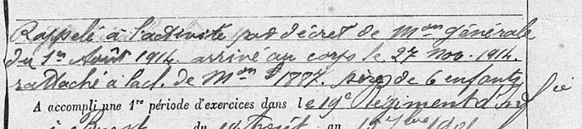 Rappelé à l'activité par décret de Mon générale
du 1er Août 1914 arrivé au corps le 27 Nov. 1914.
rattaché à la cl. de Mon 1887. père de 6 enfants
A accompli une 1re période d'exercices dans le 19e Régiment d'Inf
du au